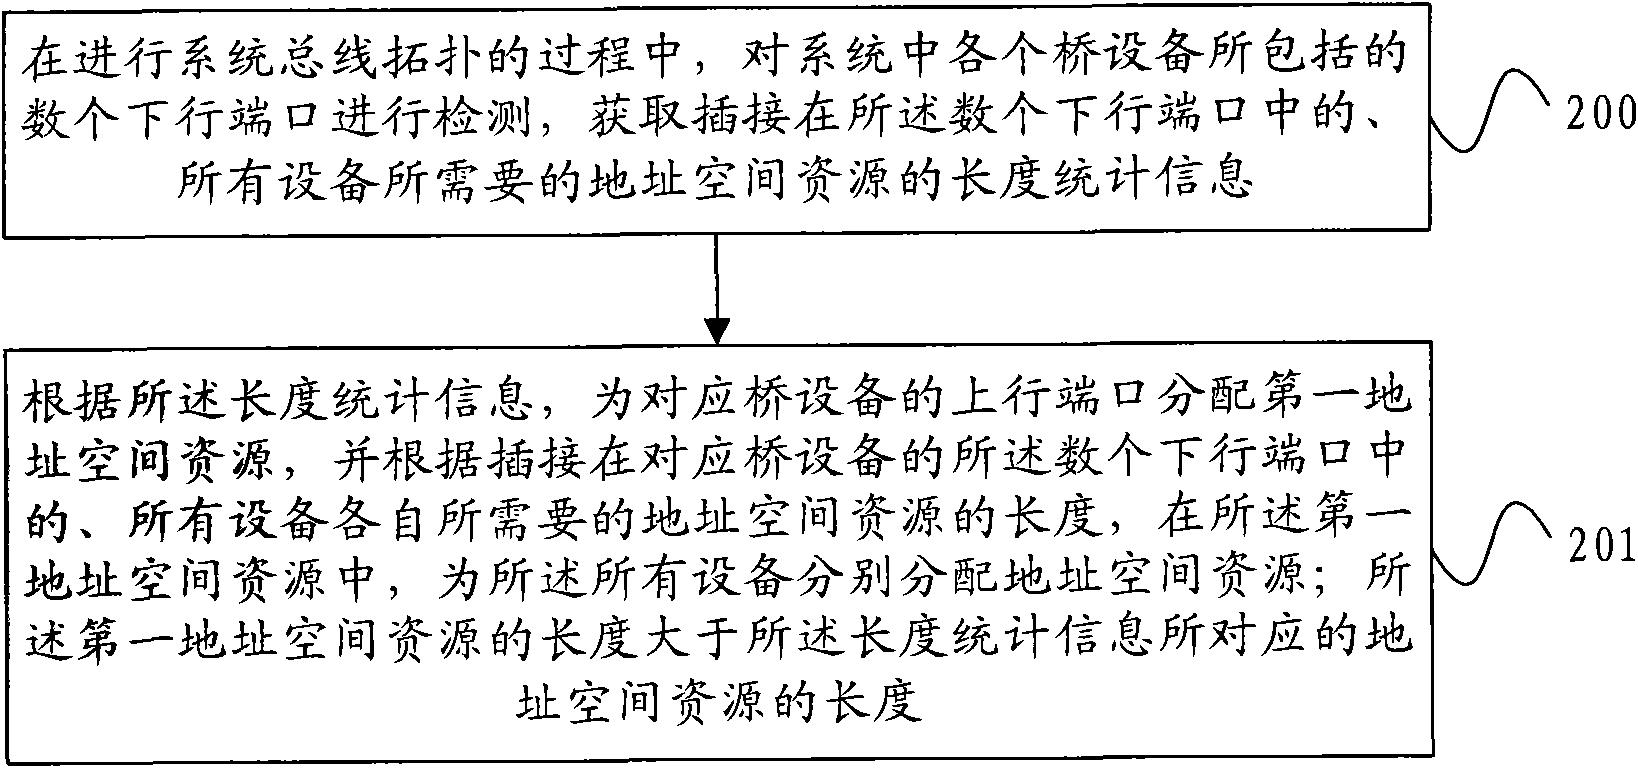 在进行系统总线拓扑的过程中，对系统中各个桥设备所包括的
数个下行端口进行检测，获取插接在所述数个下行端口中的、
所有设备所需要的地址空间资源的长度统计信息
200
根据所述长度统计信息，为对应桥设备的上行端口分配第一地
址空间资源，并根据插接在对应桥设备的所述数个下行端口中
的、所有设备各自所需要的地址空间资源的长度，在所述第一
地址空间资源中，为所述所有设备分别分配地址空间资源；所
述第一地址空间资源的长度大于所述长度统计信息所对应的地
址空间资源的长度
201